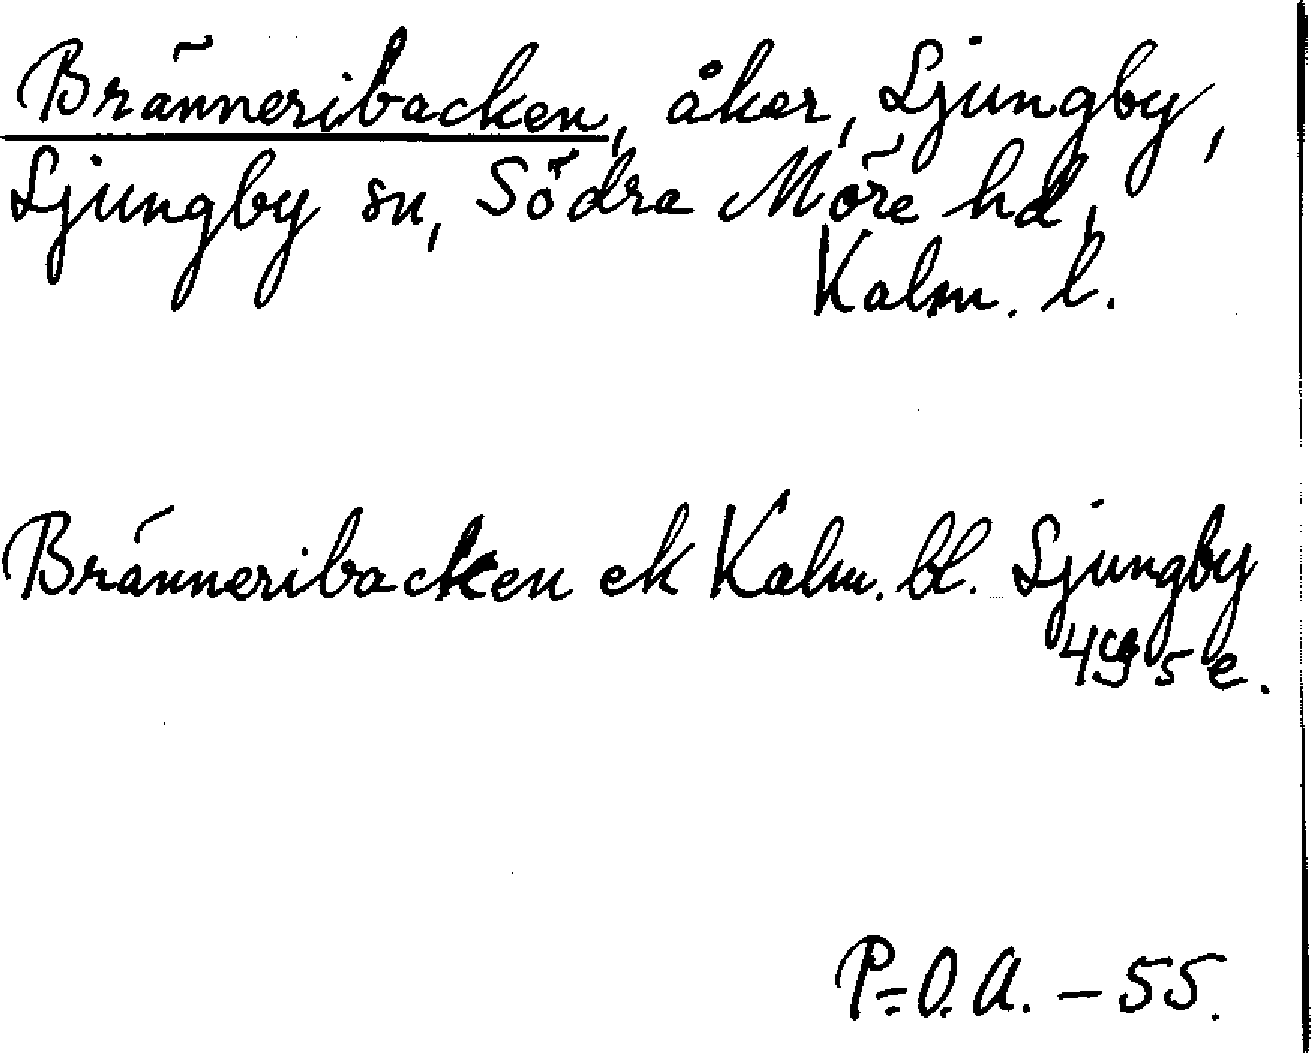 Bränneribacken, åker, Ljungby,
Ljungby sn, Södra Möre hd,
Kalm. l.
Bränneribacken ek Kalm. bl. Ljungby
49 5 e.
P-O.A. – 55.